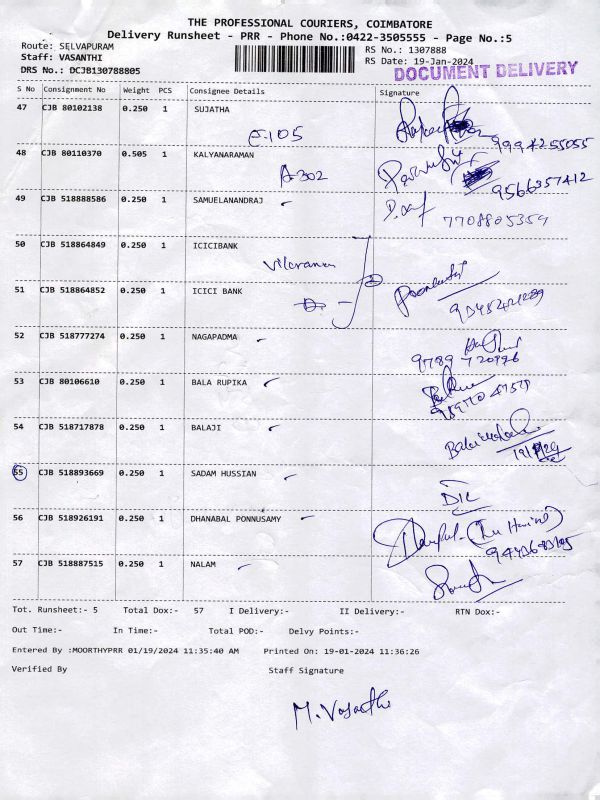 THE PROFESSIONAL COURIERS, COIMBATORE
Delivery Runsheet - PRR - Phone No.:0422-3505555 - Page No.:5
Route: SELVAPURAM
RS No.: 1307888
Staff: VASANTHI
RS Date: 19-Jan-2024
DRS No.: DCJB130788805
DOCUMENT DELIVERY
S No Consignment No Weight PCS Consignee Details Signature
47 CJB 80102138 0.250 1 SUJATHA
E-105
9994255055
48 CJB 80110370 0.505 1 KALYANARAMAN
A-302
9566357412
49 CJB 518888586 0.250 1 SAMUELANANDRAJ
7708805359
50 CJB 518864849 0.250 1 ICICIBANK
51 CJB 518864852 0.250 1 ICICI BANK
52 CJB 518777274 0.250 1 NAGAPADMA
53 CJB 80106610 0.250 1 BALA RUPIKA
54 CJB 518717878 0.250 1 BALAJI
55 CJB 518893669 0.250 1 SADAM HUSSIAN
56 CJB 518926191 0.250 1 DHANABAL PONNUSAMY
57 CJB 518887515 0.250 1 NALAM
Tot. Runsheet:- 5 Total Dox:- 57 I Delivery:- II Delivery:- RTN Dox:-
Out Time:- In Time:- Total POD:- Delvy Points:-
Entered By :MOORTHYPRR 01/19/2024 11:35:40 AM Printed On: 19-01-2024 11:36:26
Verified By Staff Signature
M. Vasanthi